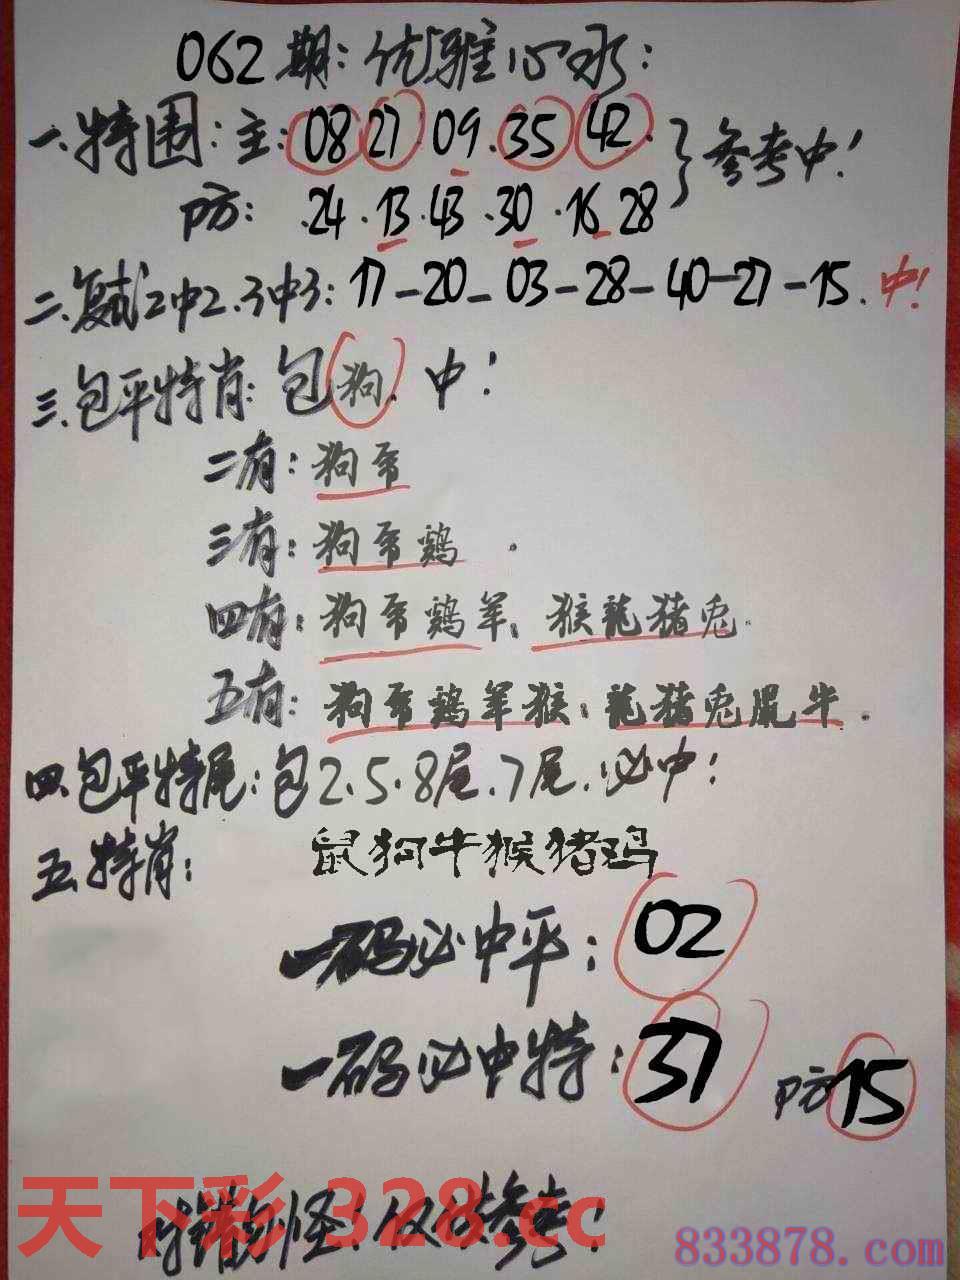 062期:优雅心水:
一.特围:主:08 27 09.35 42.
参考中!
防:.24.13.43.30.16 28
二.复试2中2.3中3:17-20-03-28-40-27-15.中!
三.包平特肖:包狗.中!
二有:狗帝
三有:狗帝鷄.
四有:狗帝鷄羊,猴龍猪兎.
五有:狗帝鷄羊猴:龍猪兎鼠牛.
四.包平特尾:包2.5.8尾.7尾.必中!
五.特肖:鼠狗牛猴猪鸡
一码必中平:02
一码必中特:37 防15
天下彩 328.cc
错勿怪!仅供参考!
833878.com